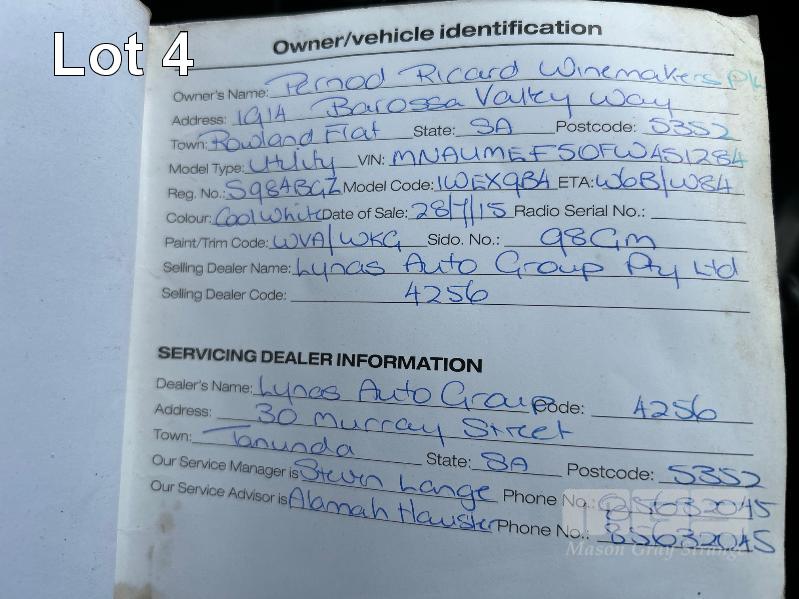 Lot 4
Owner/vehicle identification
Owner's Name: Pernod Ricard Winemakers P/L
Address: 1914 Barossa Valley Way
Town: Rowland Flat State: SA Postcode: 5352
Model Type: Utility VIN: MNAUMEF50FW451284
Reg. No.: S984BGZ Model Code: 1WEX9B4 ETA: W6B/W84
Colour: Cool White Date of Sale: 28/7/15 Radio Serial No.:
Paint/Trim Code: WVA/WKG Sido. No.: 98Gm
Selling Dealer Name: Lynas Auto Group Pty Ltd
Selling Dealer Code: 4256
SERVICING DEALER INFORMATION
Dealer's Name: Lynas Auto Group Code: 4256
Address: 30 Murray Street
Town: Tanunda State: SA Postcode: 5352
Our Service Manager is Steven Lange Phone No.: 85632045
Our Service Advisor is Alamah Phone No.: 85632045
Mason Gray Strange